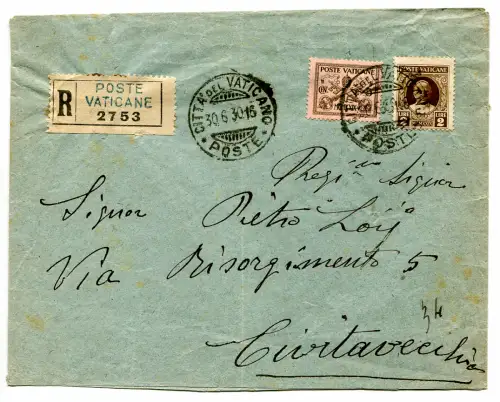 R
POSTE
VATICANE
2753
CITTÀ DEL VATICANO
30.6.30.16
* POSTE *
POSTE VATICANE
POSTE VATICANE
LIRE 2
POSTE
Signor
Pietro
Via Risorgimento 5
Civitavecchia